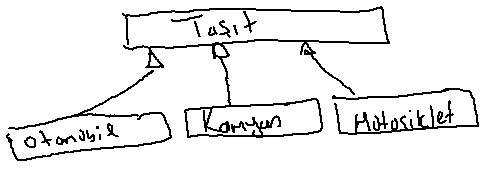 Taşıt
Otomobil
Kamyon
Motosiklet